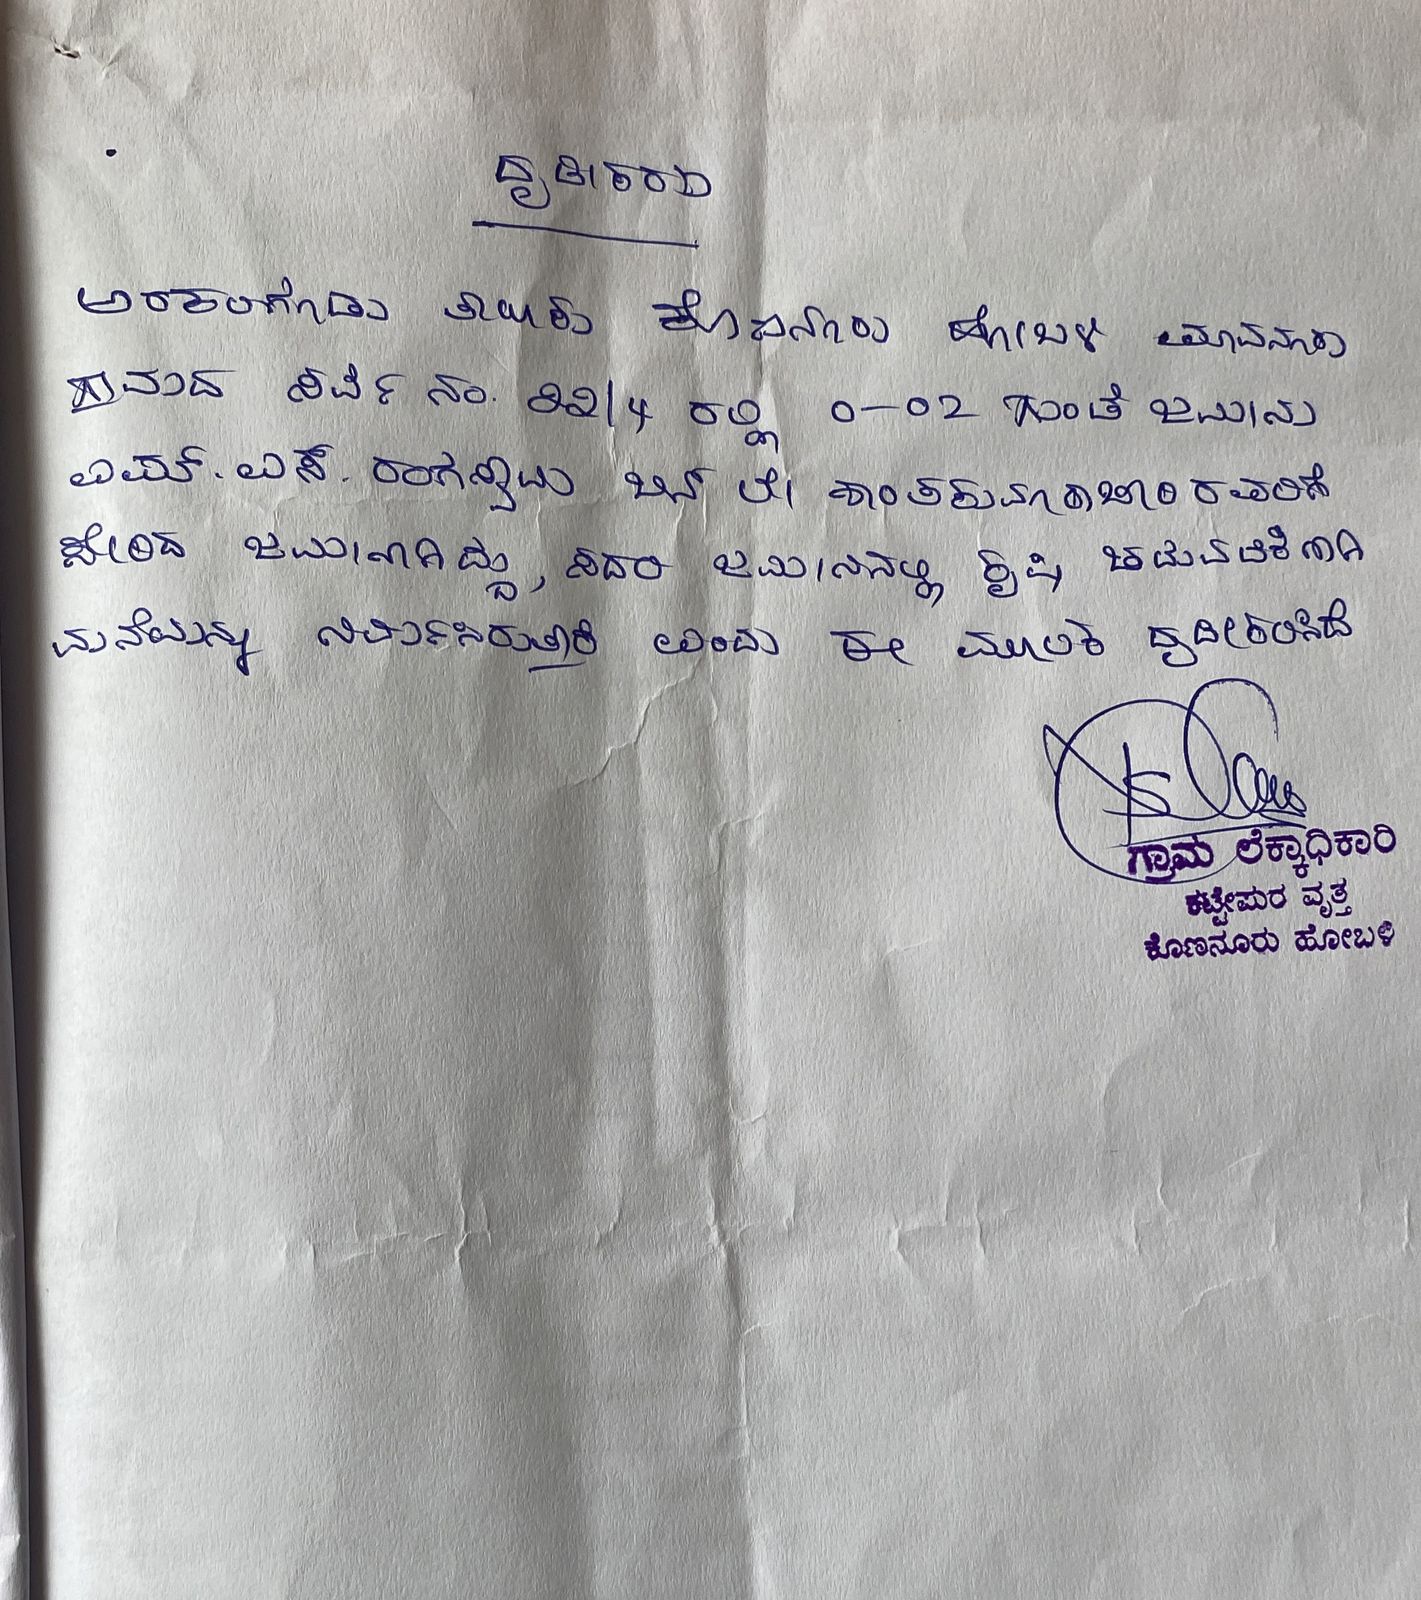 ದೃಢೀಕರಣ
ಅರಕಲಗೂಡು ತಾಲೂಕು ಕೊಣನೂರು ಹೋಬಳಿ
ಗ್ರಾಮದ ಸರ್ವೆ ನಂ. 22/4 ರಲ್ಲಿ 0-02 ಗುಂಟೆ ಜಮೀನು
ಎಮ್. ಎಸ್. ಬಿನ್ ಲೇ
ಸೇರಿದ ಜಮೀನಾಗಿದ್ದು, ಸದರಿ ಜಮೀನಿನಲ್ಲಿ ಕೃಷಿ ಚಟುವಟಿಕೆಗಾಗಿ
ಮನೆಯನ್ನು ನಿರ್ಮಿಸಿರುತ್ತಾರೆ ಎಂದು ಈ ಮೂಲಕ ದೃಢೀಕರಿಸಿದೆ
ಗ್ರಾಮ ಲೆಕ್ಕಾಧಿಕಾರಿ
ಕಟ್ಟೇಪುರ ವೃತ್ತ
ಕೊಣನೂರು ಹೋಬಳಿ